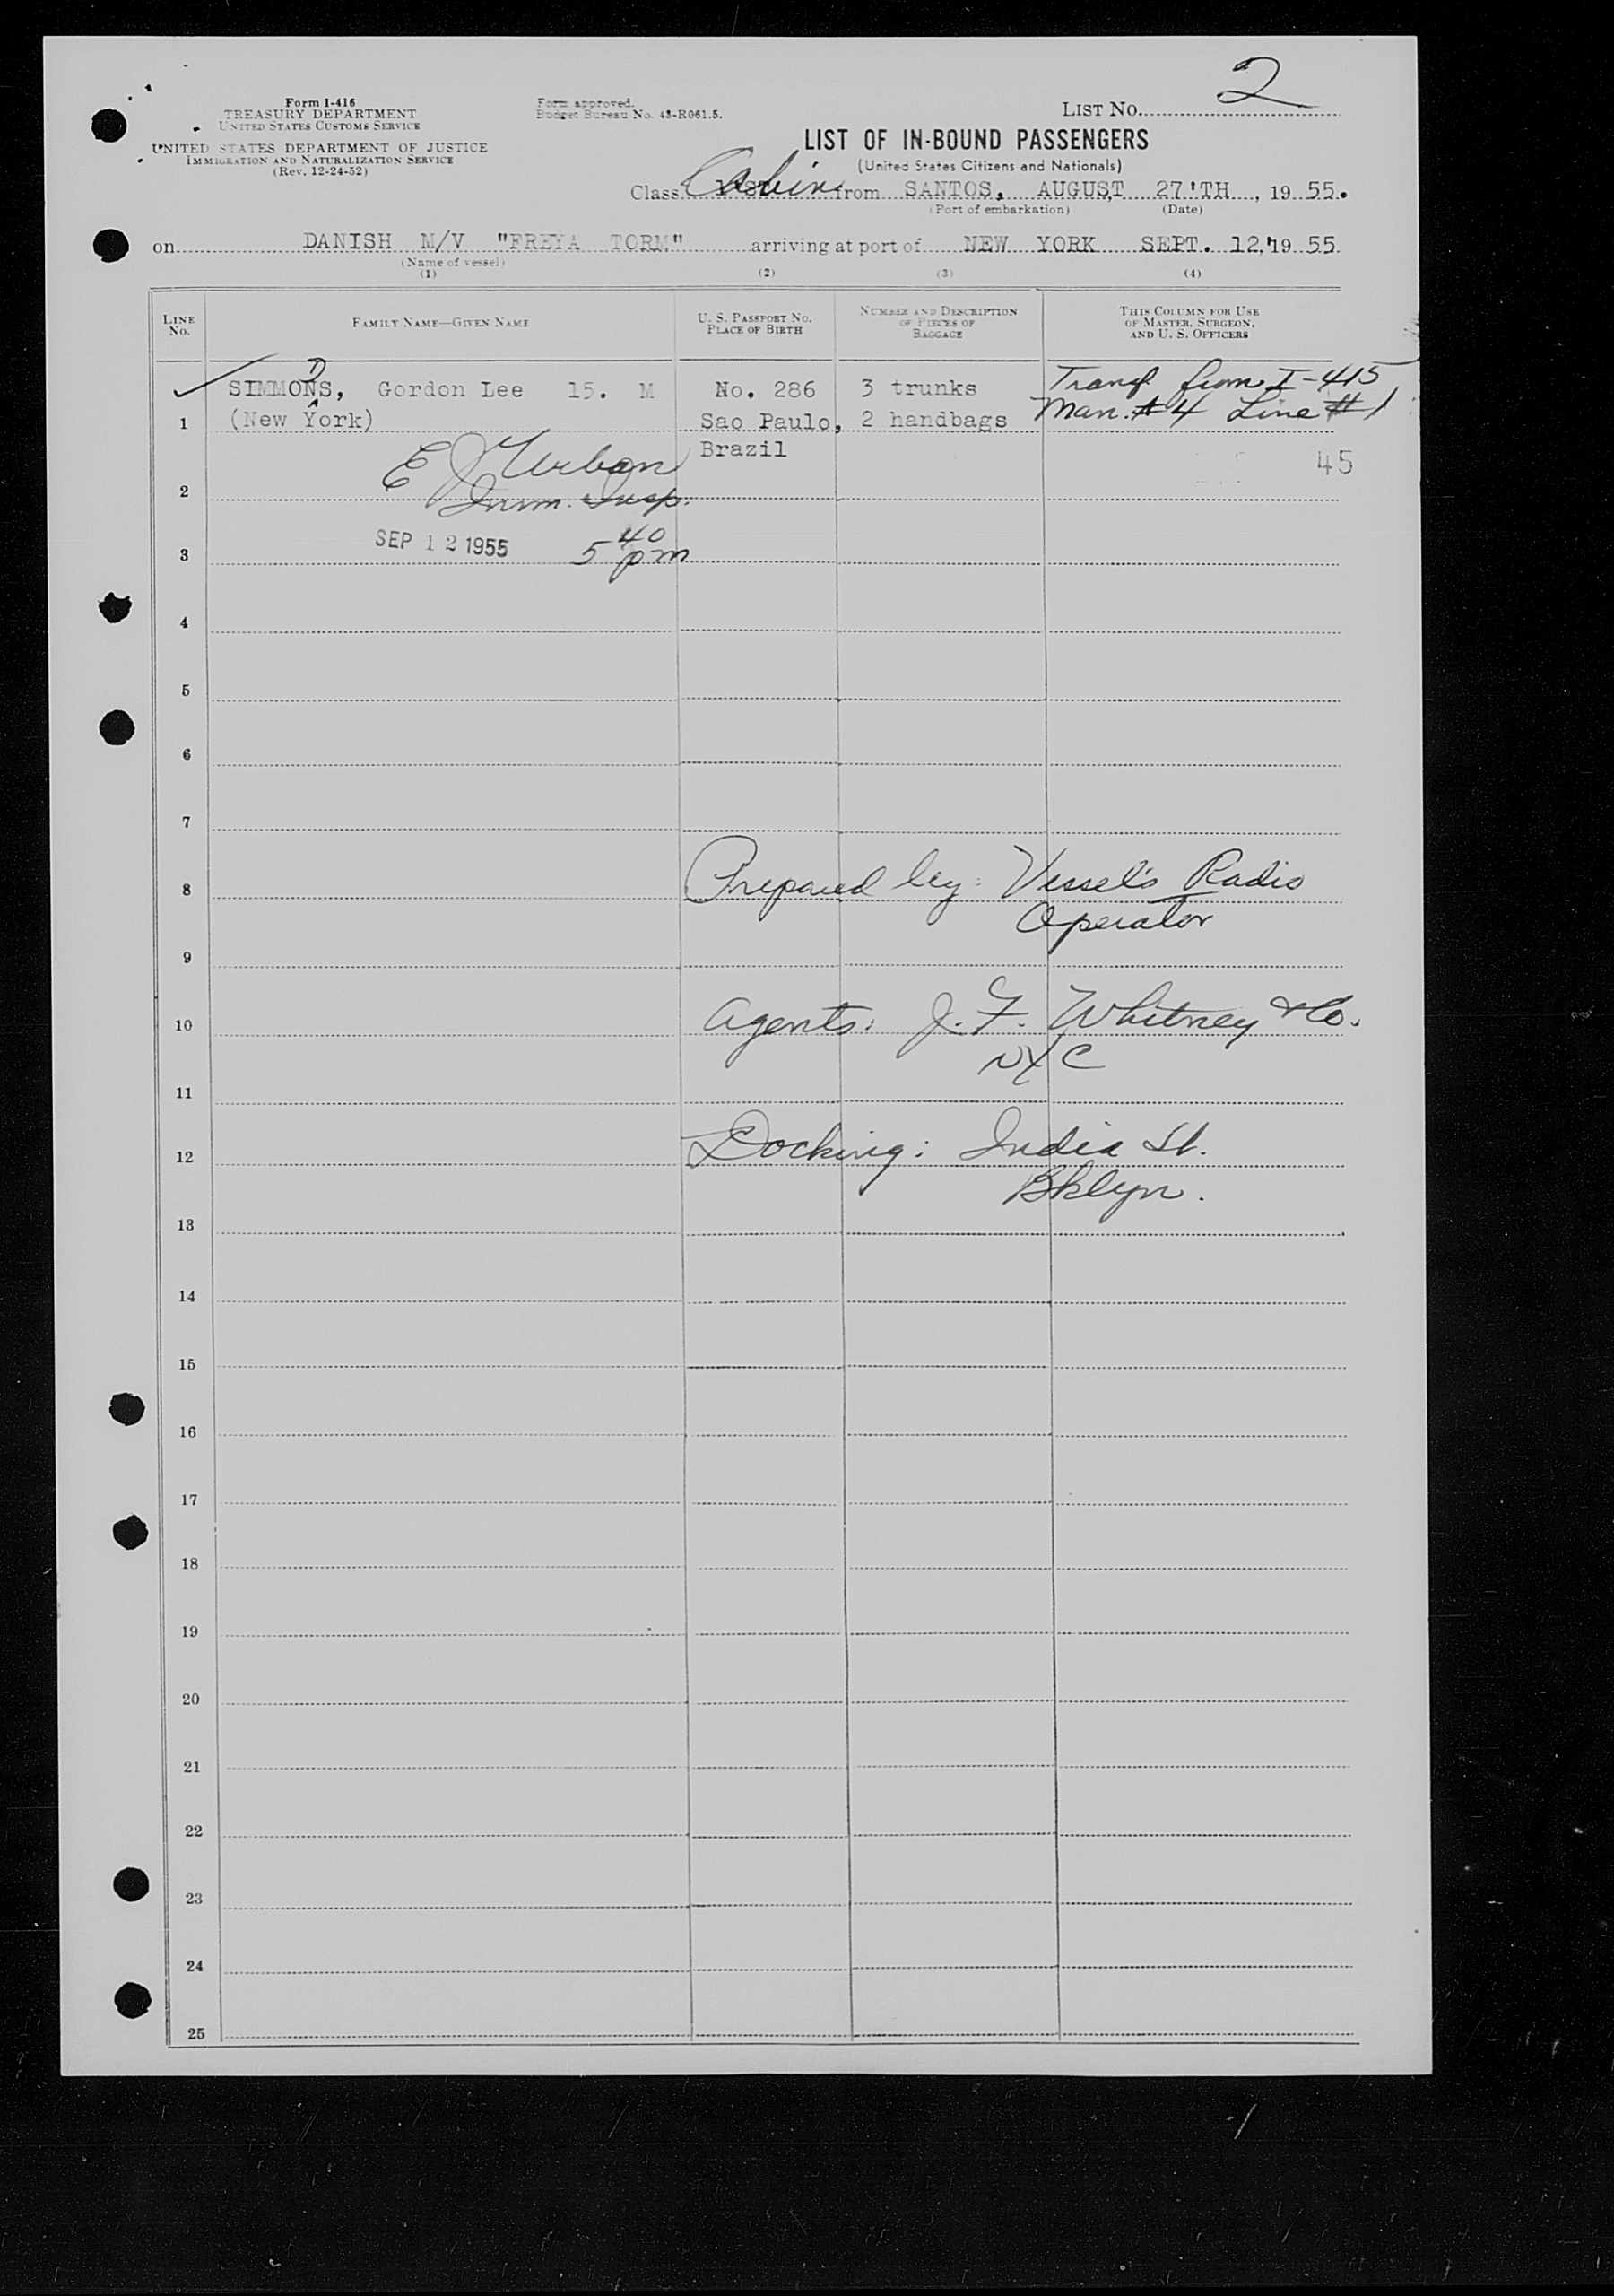 Form I-416
TREASURY DEPARTMENT
UNITED STATES CUSTOMS SERVICE
UNITED STATES DEPARTMENT OF JUSTICE
IMMIGRATION AND NATURALIZATION SERVICE
(Rev. 12-24-52)
Form approved.
Budget Bureau No. 43-R061.5.
LIST NO. 2
LIST OF IN-BOUND PASSENGERS
(United States Citizens and Nationals)
Class Cabin from SANTOS, AUGUST, 27'TH, 1955.
(Port of embarkation) (Date)
on DANISH M/V "FREYA TORM" arriving at port of NEW YORK SEPT. 12,'1955.
(Name of vessel)
(1) (2) (3) (4)
LINE NO. FAMILY NAME—GIVEN NAME U. S. PASSPORT NO. PLACE OF BIRTH NUMBER AND DESCRIPTION OF PIECES OF BAGGAGE THIS COLUMN FOR USE OF MASTER, SURGEON, AND U. S. OFFICERS
D
SIMMONS, Gordon Lee 15. M No. 286 3 trunks Transf from I-415
1 (New York) Sao Paulo, 2 handbags Man. #4 Line #1
Brazil 45
E J Urban
2 Imm. Insp.
SEP 12 1955 5 40 pm
3
4
5
6
7
8 Prepared by: Vessel's Radio
Operator
9
10 Agents: J. F. Whitney & Co.
NYC
11
12 Docking: India St.
Bklyn.
13
14
15
16
17
18
19
20
21
22
23
24
25